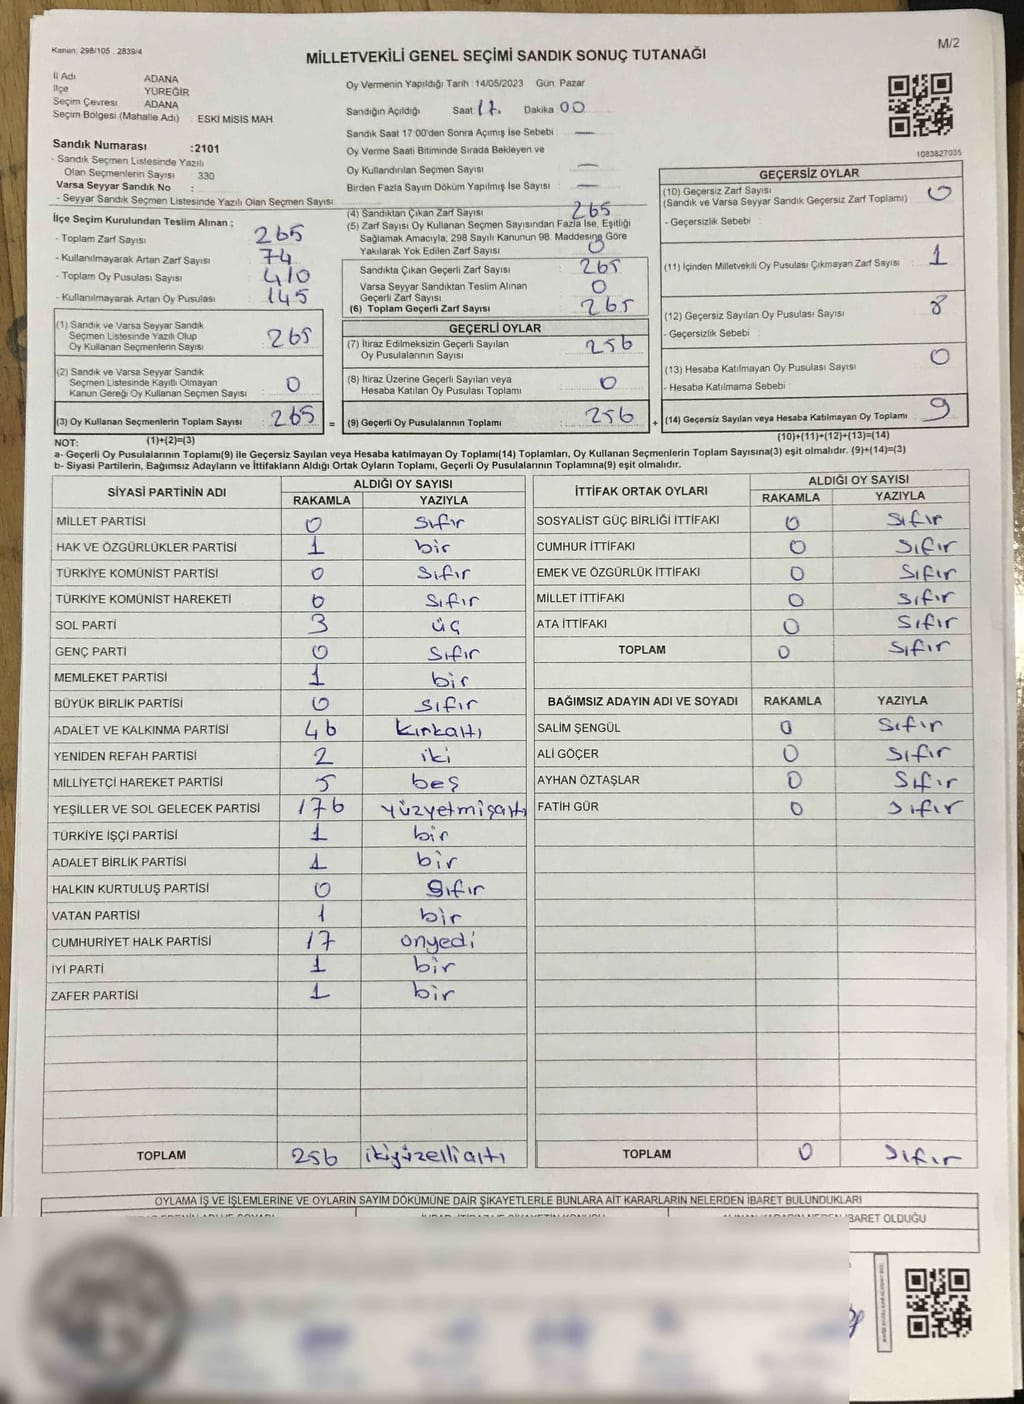 Kanun; 298/105 2839/4
M/2
MİLLETVEKİLİ GENEL SEÇİMİ SANDIK SONUÇ TUTANAĞI
İl Adı ADANA
İlçe YÜREĞİR
Seçim Çevresi ADANA
Seçim Bölgesi (Mahalle Adı) ESKİ MİSİS MAH
Sandık Numarası :2101
- Sandık Seçmen Listesinde Yazılı
Olan Seçmenlerin Sayısı 330
Varsa Seyyar Sandık No :
- Seyyar Sandık Seçmen Listesinde Yazılı Olan Seçmen Sayısı
Oy Vermenin Yapıldığı Tarih : 14/05/2023 Gün: Pazar
Sandığın Açıldığı Saat: 17. Dakika 00
Sandık Saat 17:00'den Sonra Açımış İse Sebebi : —
Oy Verme Saati Bitiminde Sırada Bekleyen ve
Oy Kullandırılan Seçmen Sayısı —
Birden Fazla Sayım Döküm Yapılmış İse Sayısı —
1083827035
İlçe Seçim Kurulundan Teslim Alınan ;
- Toplam Zarf Sayısı 265
- Kullanılmayarak Artan Zarf Sayısı : 74
- Toplam Oy Pusulası Sayısı 410
- Kullanılmayarak Artan Oy Pusulası 145
(1) Sandık ve Varsa Seyyar Sandık
Seçmen Listesinde Yazılı Olup
Oy Kullanan Seçmenlerin Sayısı 265
(2) Sandık ve Varsa Seyyar Sandık
Seçmen Listesinde Kayıtlı Olmayan
Kanun Gereği Oy Kullanan Seçmen Sayısı 0
(3) Oy Kullanan Seçmenlerin Toplam Sayısı 265 =
(4) Sandıktan Çıkan Zarf Sayısı 265
(5) Zarf Sayısı Oy Kullanan Seçmen Sayısından Fazla İse, Eşitliği
Sağlamak Amacıyla; 298 Sayılı Kanunun 98. Maddesine Göre
Yakılarak Yok Edilen Zarf Sayısı 0
Sandıkta Çıkan Geçerli Zarf Sayısı 265
Varsa Seyyar Sandıktan Teslim Alınan
Geçerli Zarf Sayısı 0
(6) Toplam Geçerli Zarf Sayısı 265
GEÇERLİ OYLAR
(7) İtiraz Edilmeksizin Geçerli Sayılan
Oy Pusulalarının Sayısı 256
(8) İtiraz Üzerine Geçerli Sayılan veya
Hesaba Katılan Oy Pusulası Toplamı 0
(9) Geçerli Oy Pusulalarının Toplamı 256 +
GEÇERSİZ OYLAR
(10) Geçersiz Zarf Sayısı
(Sandık ve Varsa Seyyar Sandık Geçersiz Zarf Toplamı) 0
- Geçersizlik Sebebi :
(11) İçinden Milletvekili Oy Pusulası Çıkmayan Zarf Sayısı 1
(12) Geçersiz Sayılan Oy Pusulası Sayısı 8
- Geçersizlik Sebebi
(13) Hesaba Katılmayan Oy Pusulası Sayısı 0
- Hesaba Katılmama Sebebi
(14) Geçersiz Sayılan veya Hesaba Katılmayan Oy Toplamı 9
NOT: (1)+(2)=(3) (10)+(11)+(12)+(13)=(14)
a- Geçerli Oy Pusulalarının Toplamı(9) ile Geçersiz Sayılan veya Hesaba katılmayan Oy Toplamı(14) Toplamları, Oy Kullanan Seçmenlerin Toplam Sayısına(3) eşit olmalıdır. (9)+(14)=(3)
b- Siyasi Partilerin, Bağımsız Adayların ve İttifakların Aldığı Ortak Oyların Toplamı, Geçerli Oy Pusulalarının Toplamına(9) eşit olmalıdır.
SİYASİ PARTİNİN ADI ALDIĞI OY SAYISI
RAKAMLA YAZIYLA
MİLLET PARTİSİ 0 sıfır
HAK VE ÖZGÜRLÜKLER PARTİSİ 1 bir
TÜRKİYE KOMÜNİST PARTİSİ 0 sıfır
TÜRKİYE KOMÜNİST HAREKETİ 0 sıfır
SOL PARTİ 3 üç
GENÇ PARTİ 0 sıfır
MEMLEKET PARTİSİ 1 bir
BÜYÜK BİRLİK PARTİSİ 0 sıfır
ADALET VE KALKINMA PARTİSİ 46 kırkaltı
YENİDEN REFAH PARTİSİ 2 iki
MİLLİYETÇİ HAREKET PARTİSİ 5 beş
YEŞİLLER VE SOL GELECEK PARTİSİ 176 yüzyetmişaltı
TÜRKİYE İŞÇİ PARTİSİ 1 bir
ADALET BİRLİK PARTİSİ 1 bir
HALKIN KURTULUŞ PARTİSİ 0 sıfır
VATAN PARTİSİ 1 bir
CUMHURİYET HALK PARTİSİ 17 onyedi
İYİ PARTİ 1 bir
ZAFER PARTİSİ 1 bir
TOPLAM 256 ikiyüzelli altı
İTTİFAK ORTAK OYLARI ALDIĞI OY SAYISI
RAKAMLA YAZIYLA
SOSYALİST GÜÇ BİRLİĞİ İTTİFAKI 0 sıfır
CUMHUR İTTİFAKI 0 sıfır
EMEK VE ÖZGÜRLÜK İTTİFAKI 0 sıfır
MİLLET İTTİFAKI 0 sıfır
ATA İTTİFAKI 0 sıfır
TOPLAM 0 sıfır
BAĞIMSIZ ADAYIN ADI VE SOYADI RAKAMLA YAZIYLA
SALİM ŞENGÜL 0 sıfır
ALİ GÖÇER 0 sıfır
AYHAN ÖZTAŞLAR 0 sıfır
FATİH GÜR 0 sıfır
TOPLAM 0 sıfır
OYLAMA İŞ VE İŞLEMLERİNE VE OYLARIN SAYIM DÖKÜMÜNE DAİR ŞİKAYETLERLE BUNLARA AİT KARARLARIN NELERDEN İBARET BULUNDUKLARI
İBARET OLDUĞU